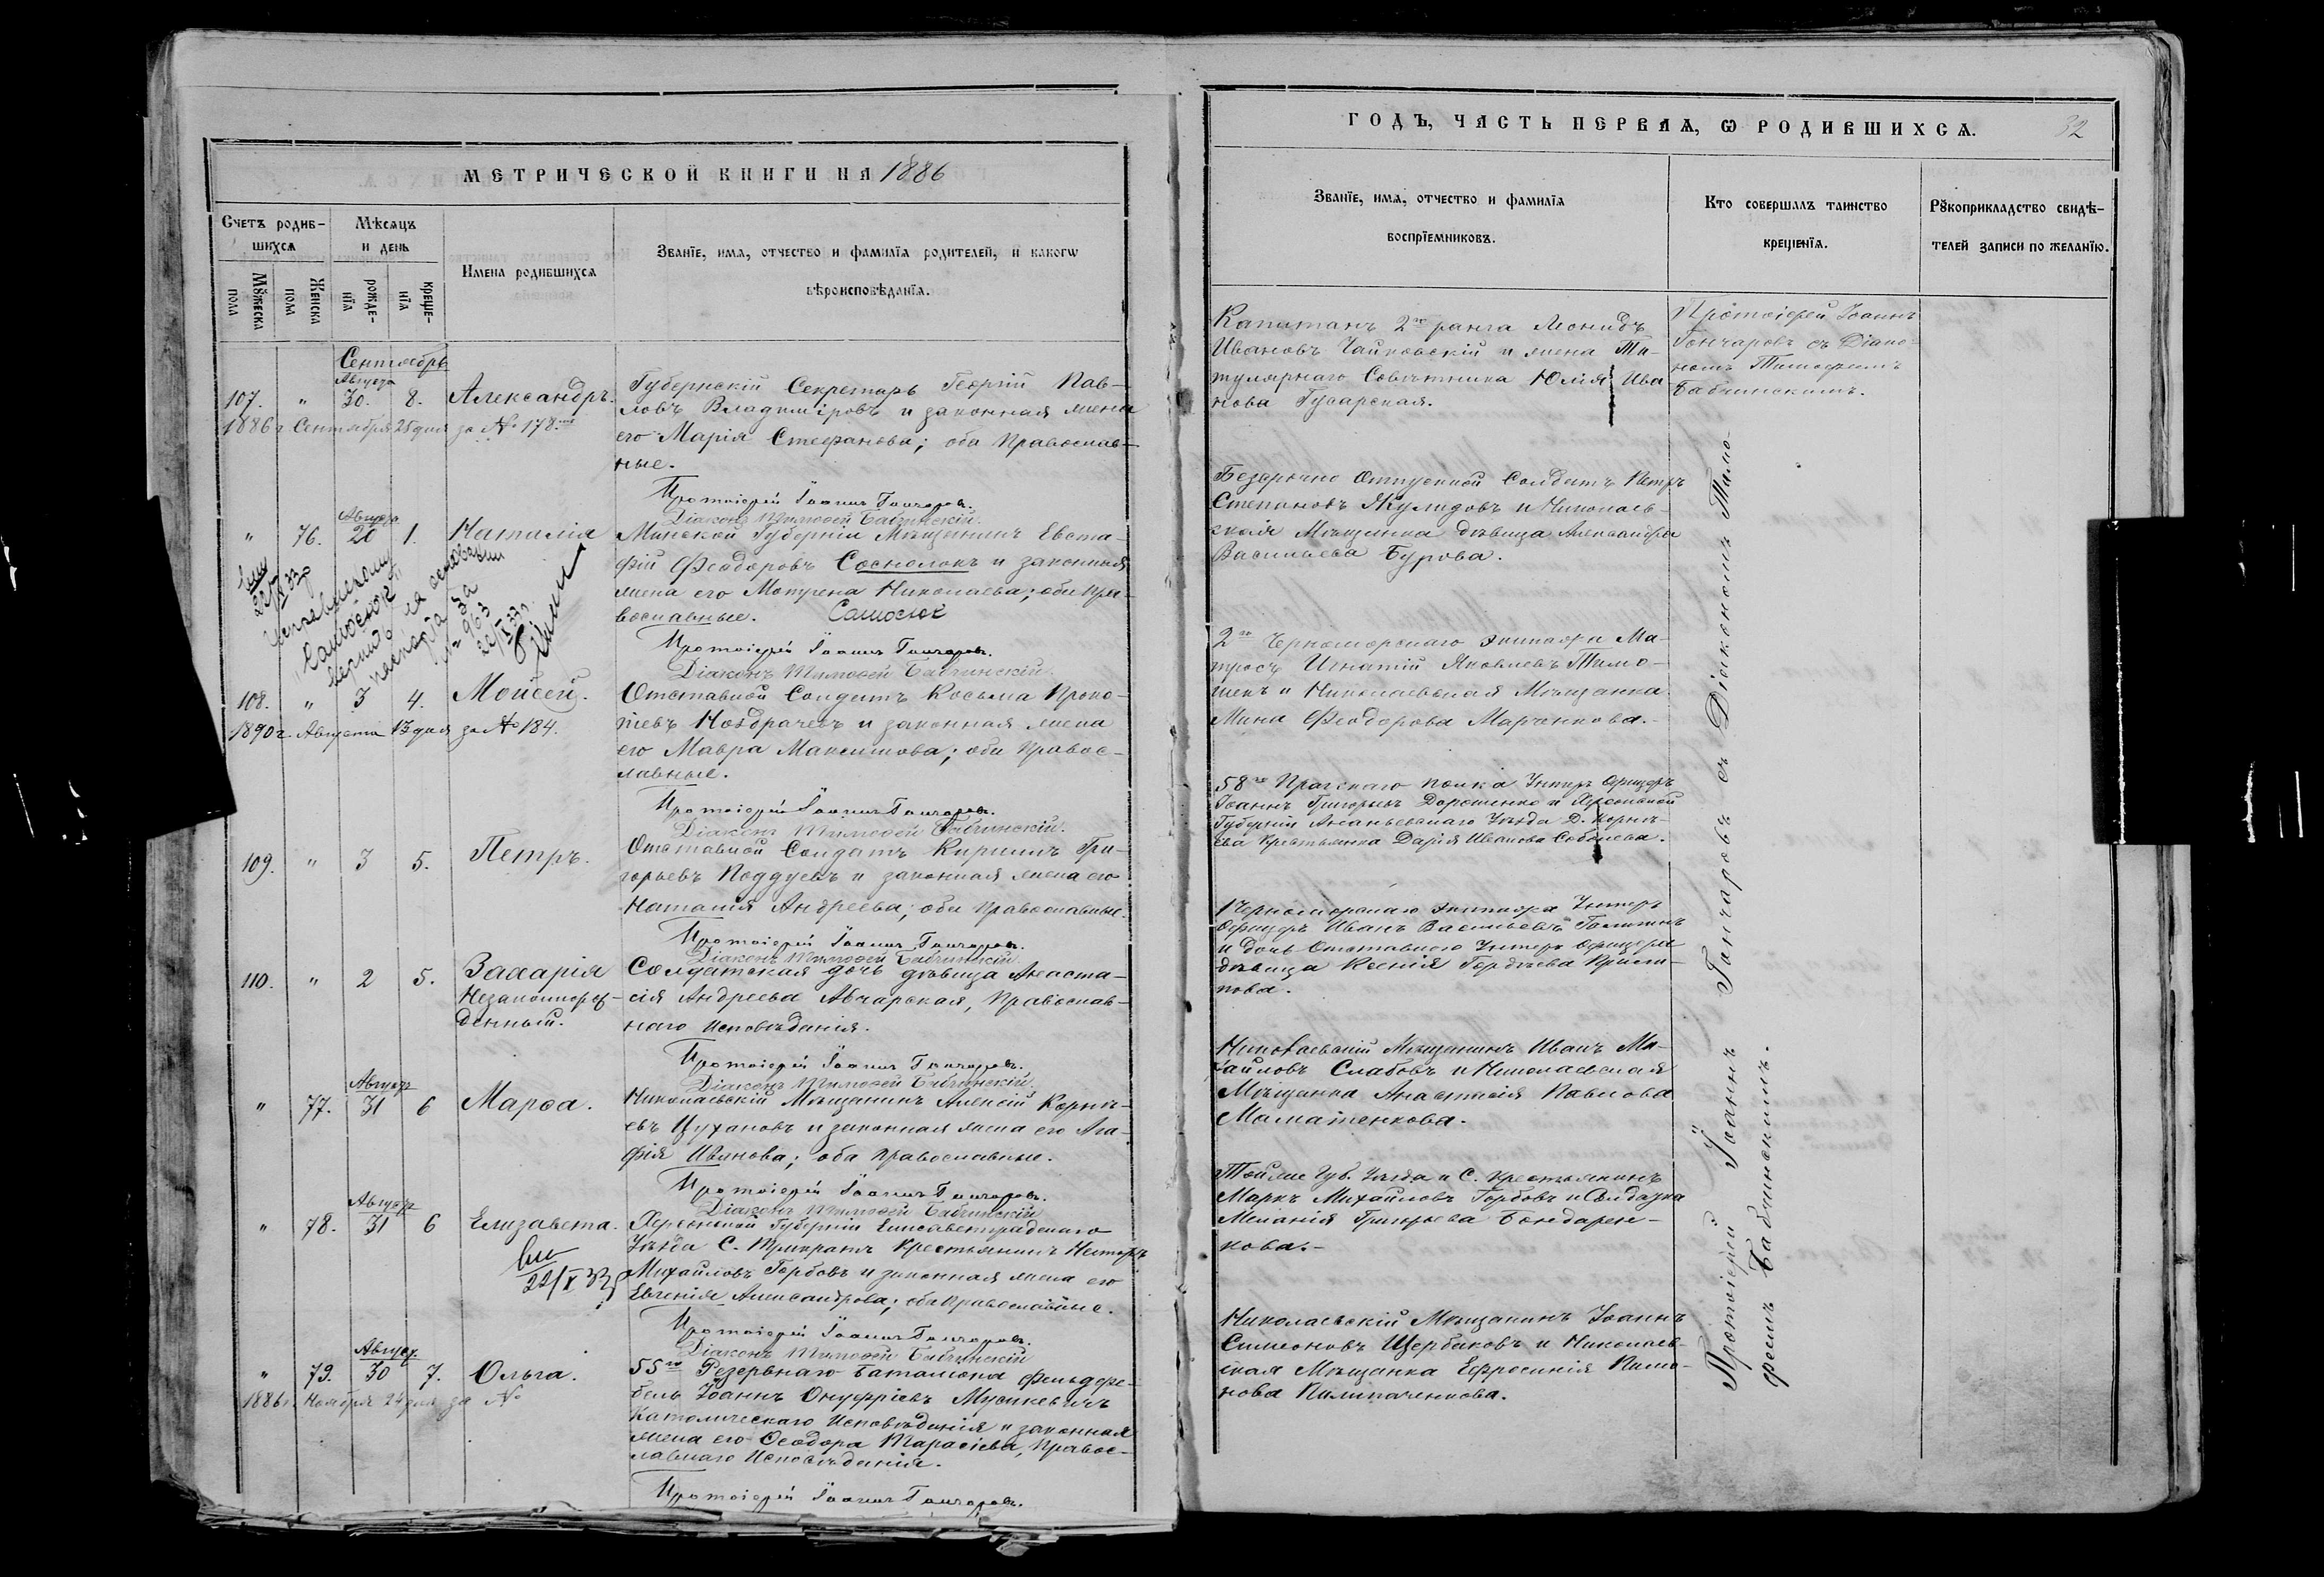 МЕТРИЧЕСКОЙ КНИГИ НА 1886
Счетъ родив-
шихся
Мѣсяцъ
и день
Мꙋжеска пола
Женска пола
рожде-
нїя
креще-
нїя
Имена родившихся
Званїе, имя, отчество и фамилїя родителей, и какогѡ
вѣроисповѣданїя.
Сентябрь
Августа
107. " 30. 8. Александръ.
1886 г Сентября 25 дня за № 178.
Губернскій Секретарь Георгій Пав-
ловъ Владиміровъ и законная жена
его Марія Стефанова; оба православ-
ные.
Протоіерей Іоаннъ Гончаровъ.
Діаконъ Тимофей Бабчинскій.
Августа
" 76. 20 1. Наталія
Минской Губерніи Мѣщанинъ Евста-
фій Феодоровъ и законная
жена его Матрена Николаева; оба пра-
вославные. Самосюк
Протоіерей Іоаннъ Гончаровъ.
Діаконъ Тимофей Бабчинскій.
Исправленному
"Самосюк"
верить на основании
паспорта за
№ 963
108. " 3 4. Мойсей.
1890 г. Августа 13 дня за № 184.
Отставной Солдатъ Косьма Проко-
піевъ Ноздрачевъ и законная жена
его Мавра Максимова; оба правос-
лавные.
Протоіерей Іоаннъ Гончаровъ.
Діаконъ Тимофей Бабчинскій.
109. " 3 5. Петръ.
Отставной Солдатъ Кириллъ Гри-
горьевъ Поддуевъ и законная жена его
Наталія Андреева; оба православные.
Протоіерей Іоаннъ Гончаровъ.
Діаконъ Тимофей Бабчинскій.
110. " 2 5. Захарія
Незаконнорож-
денный.
Солдатская дочь дѣвица Анаста-
сія Андреева Авчарская, православ-
наго исповѣданія.
Протоіерей Іоаннъ Гончаровъ.
Діаконъ Тимофей Бабчинскій.
Августа
" 77. 31 6 Марѳа.
Николаевскій Мѣщанинъ Алексій Корнѣ-
евъ Цухановъ и законная жена его Ага-
фія Иванова; оба православные.
Протоіерей Іоаннъ Гончаровъ.
Діаконъ Тимофей Бабчинскій
Августа
" 78. 31 6 Елизавета.
22/X 33
Херсонской Губерніи Елисаветградскаго
Уѣзда С. Трикратъ Крестьянинъ Несторъ
Михайловъ Горбовъ и законная жена его
Евгенія Александрова; оба православные.
Протоіерей Іоаннъ Гончаровъ.
Діаконъ Тимофей Бабчинскій
Август.
" 79. 30 7. Ольга.
1886 г. Ноября 24 дня за №
55го Резервнаго Баталіона фельдфе-
бель Іоаннъ Онуфріевъ Мусикевичъ
Католическаго исповѣданія и законная
жена его Ѳеодора Тарасіева, правос-
лавнаго исповѣданія.
Протоіерей Іоаннъ Гончаровъ.
ГОДЪ, ЧАСТЬ ПЕРВАЯ, Ѡ РОДИВШИХСЯ.
32
Званїе, имя, отчество и фамилїя
воспрїемниковъ.
Кто совершалъ таинство
крещенїя.
Рꙋкоприкладство свидѣ-
телей записи по желанїю.
Капитанъ 2го ранга Леонидъ
Ивановъ Чайковскій и жена Ти-
тулярнаго Совѣтника Юлія Ива-
нова Гусарская.
Протоіерей Іоаннъ
Гончаровъ съ Діако-
номъ Тимофеемъ
Бабчинскимъ.
Безсрочно Отпускной Солдатъ Петръ
Степановъ Жулидовъ и Николаев-
ская Мѣщанка дѣвица Александра
Васильева Бурова.
2го Черноморскаго экипажа Ма-
тросъ Игнатій Яковлевъ Тимо-
шекъ и Николаевская Мѣщанка
Мина Феодорова Марченкова.
58го Прагскаго полка Унтеръ Офицеръ
Іоаннъ Григорьевъ Дорошенко и Херсонской
Губерніи Ананьевскаго Уѣзда Д. Корнѣ-
ева Крестьянка Дарія Иванова Соболева.
1 Черноморскаго экипажа Унтеръ
Офицеръ Иванъ Васильевъ
и дочь Отставнаго Унтеръ Офицера
дѣвица Ксенія Гордѣева
Николаевскій Мѣщанинъ Иванъ Ми-
хайловъ Слабовъ и Николаевская
Мѣщанка Анастасія Павлова
Маматенкова.
Той же Губ. Уѣзда и С. Крестьянинъ
Маркъ Михайловъ Горбовъ и Солдатка
Меланія Григорьева Бондарен-
кова.
Николаевскій Мѣщанинъ Іоаннъ
Симеоновъ Щербаковъ и Николаев-
ская Мѣщанка Ефросинія
нова Пилипаченкова.
Протоіерей Іоаннъ Гончаровъ съ Діакономъ Тимо-
феемъ Бабчинскимъ.